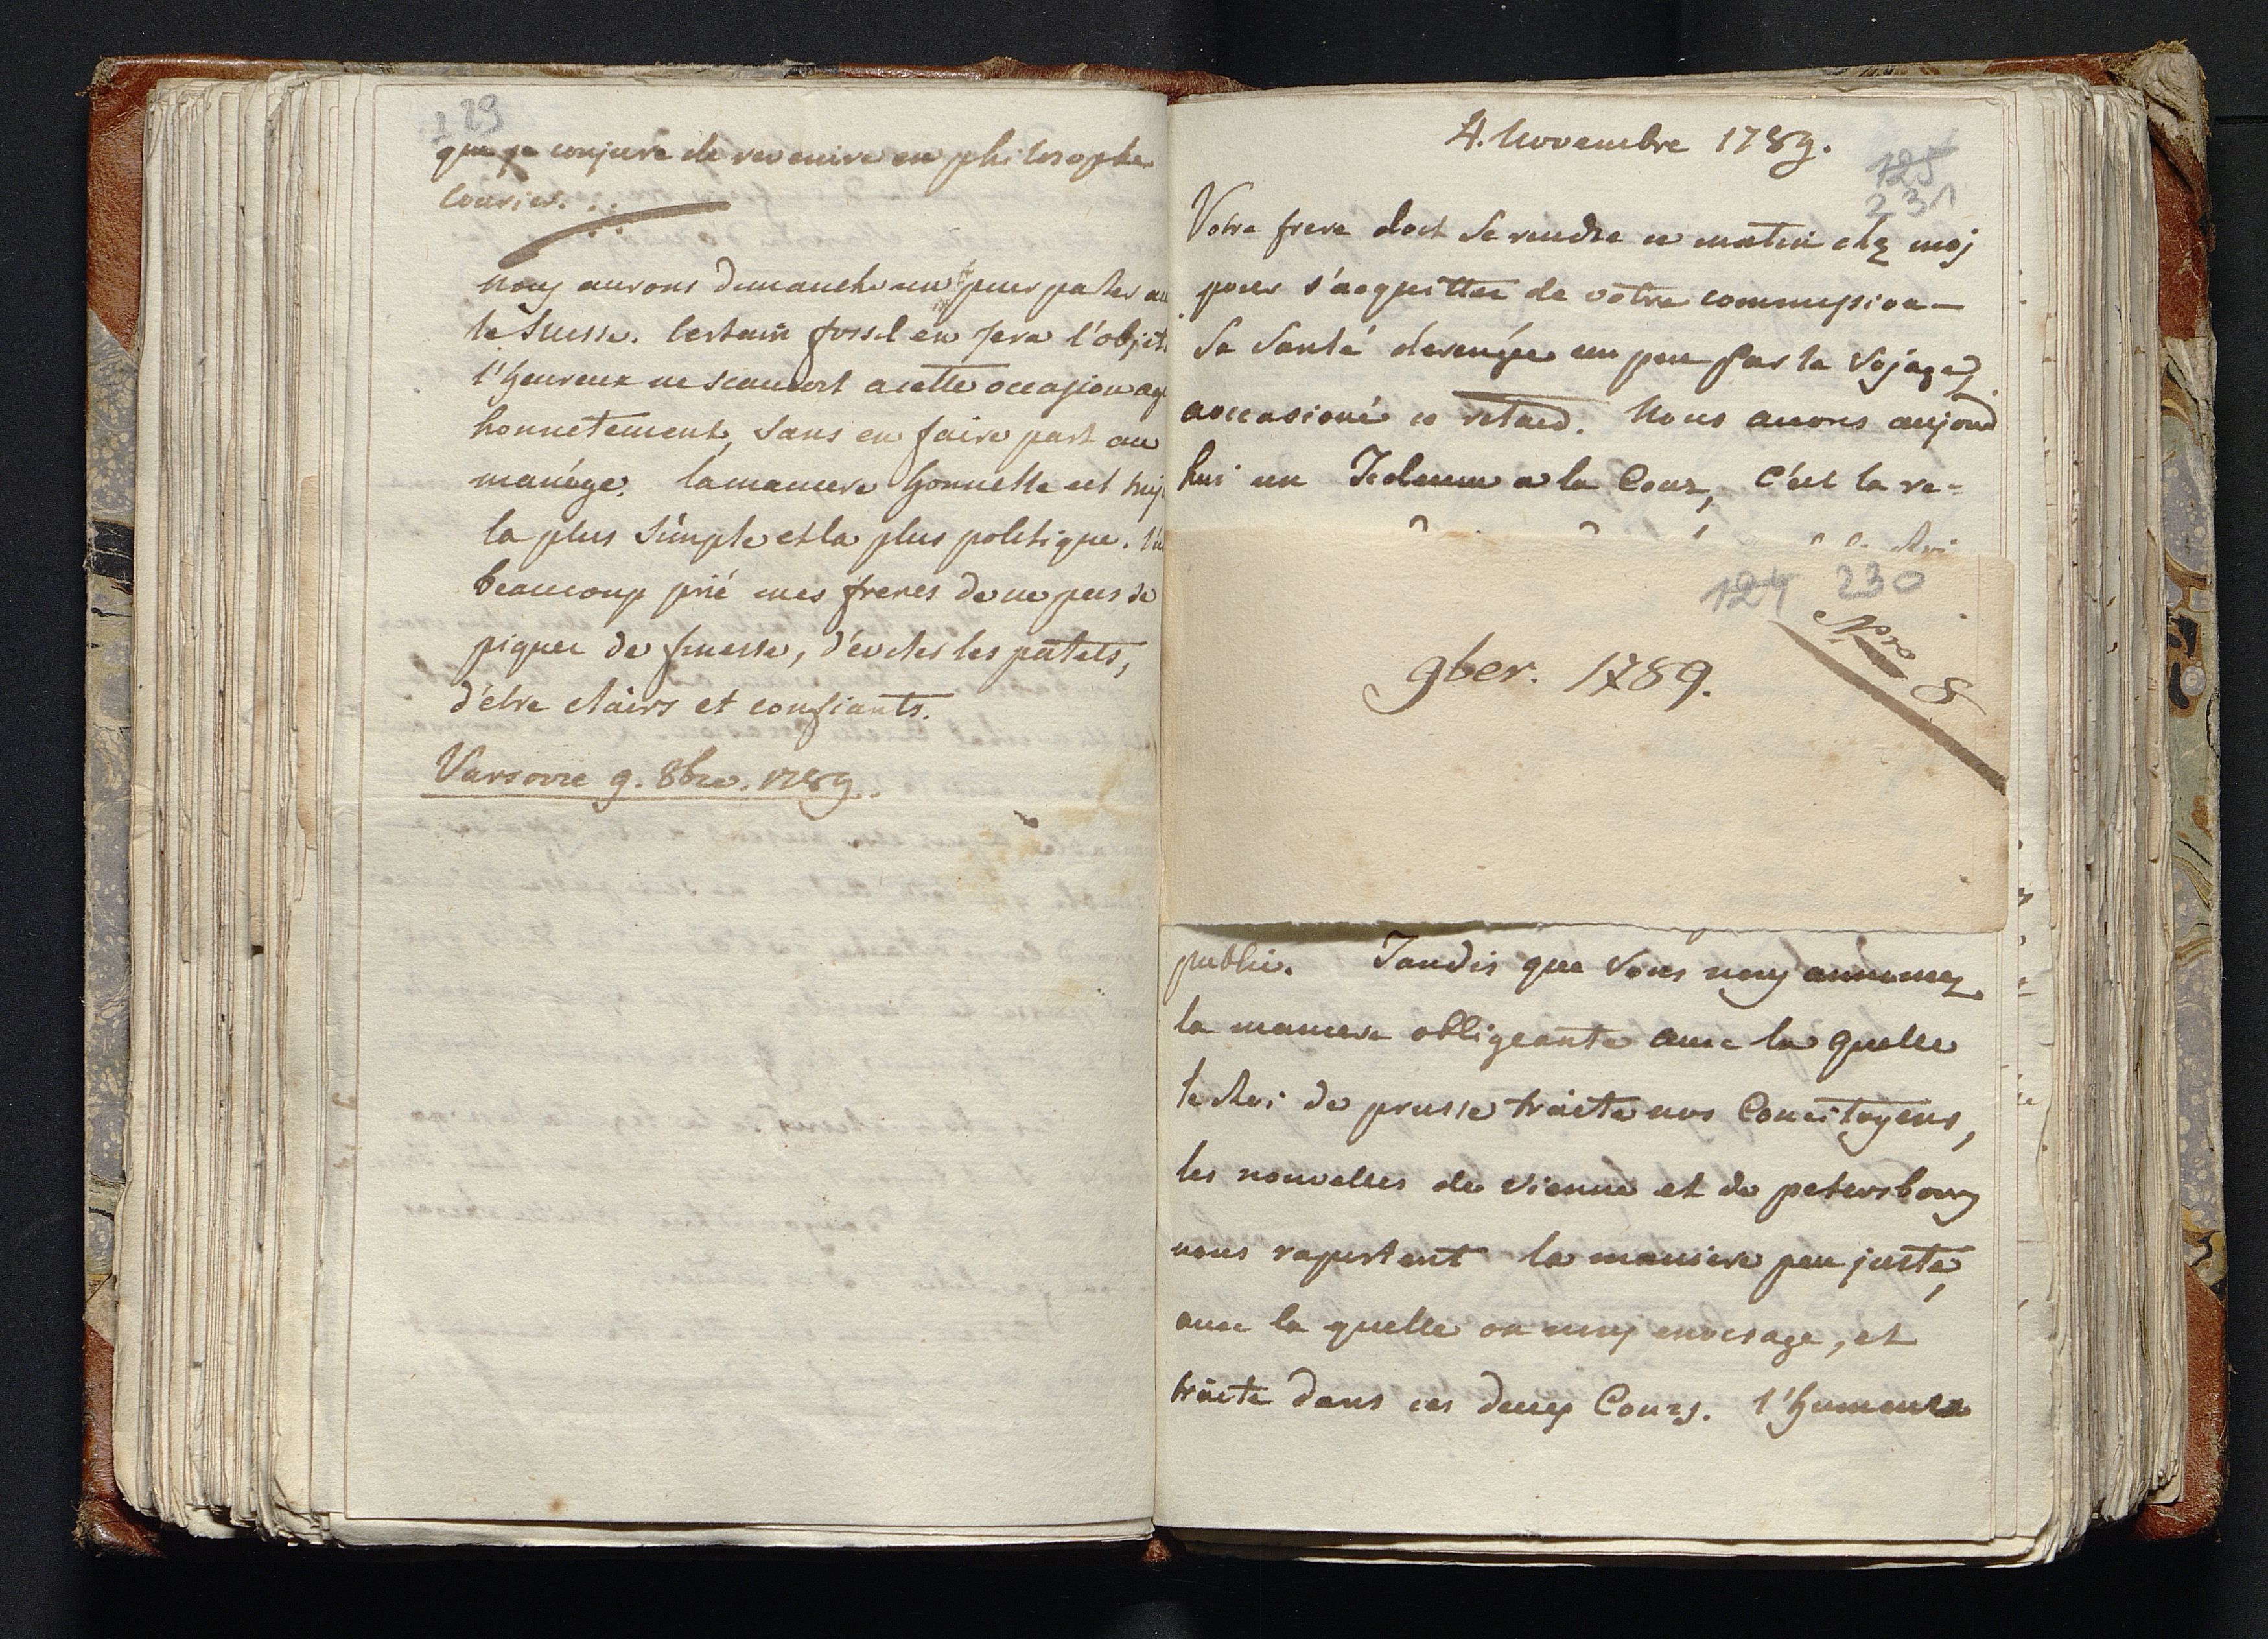 229
que je conjure de revenire en philosophe
Courier. . .
nous aurons dimanche un pourparler au
le Suisse. Certain fossil en sera l'objet
l'heureux ne scauroit a cette occasion ag
honnetement, sans en faire part au
manége. la maniere honnette est tuj
la plus simple et la plus politique.
beaucoup prié mes freres de ne pas se
piquer de finesse, d'eviter les
d'étre clairs et confiants.
Varsovie 9. 8bre. 1789.
4. Novembre 1789.
125
231
Votre frere doit se rendre ce matin chez moj
pour s'acquitter de votre commission
Sa Santé derengée un peu par le Vojage,
aoccasioné ce retard. Nous avons aujourd
hui un Tedeum a la Cour, c'est la re-
Roi
124 230
Nro 8
9ber. 1789.
public. Tandis que Vous nous annoncez
la maniere obligeante avec la quelle
le Roi de prusse traite nos Concitoyens,
les nouvelles de vienne et de petersbourg
nous raportent la maniere peu juste,
avec la quelle on nous envisage, et
traite dans ces deux Cours. l'humeur